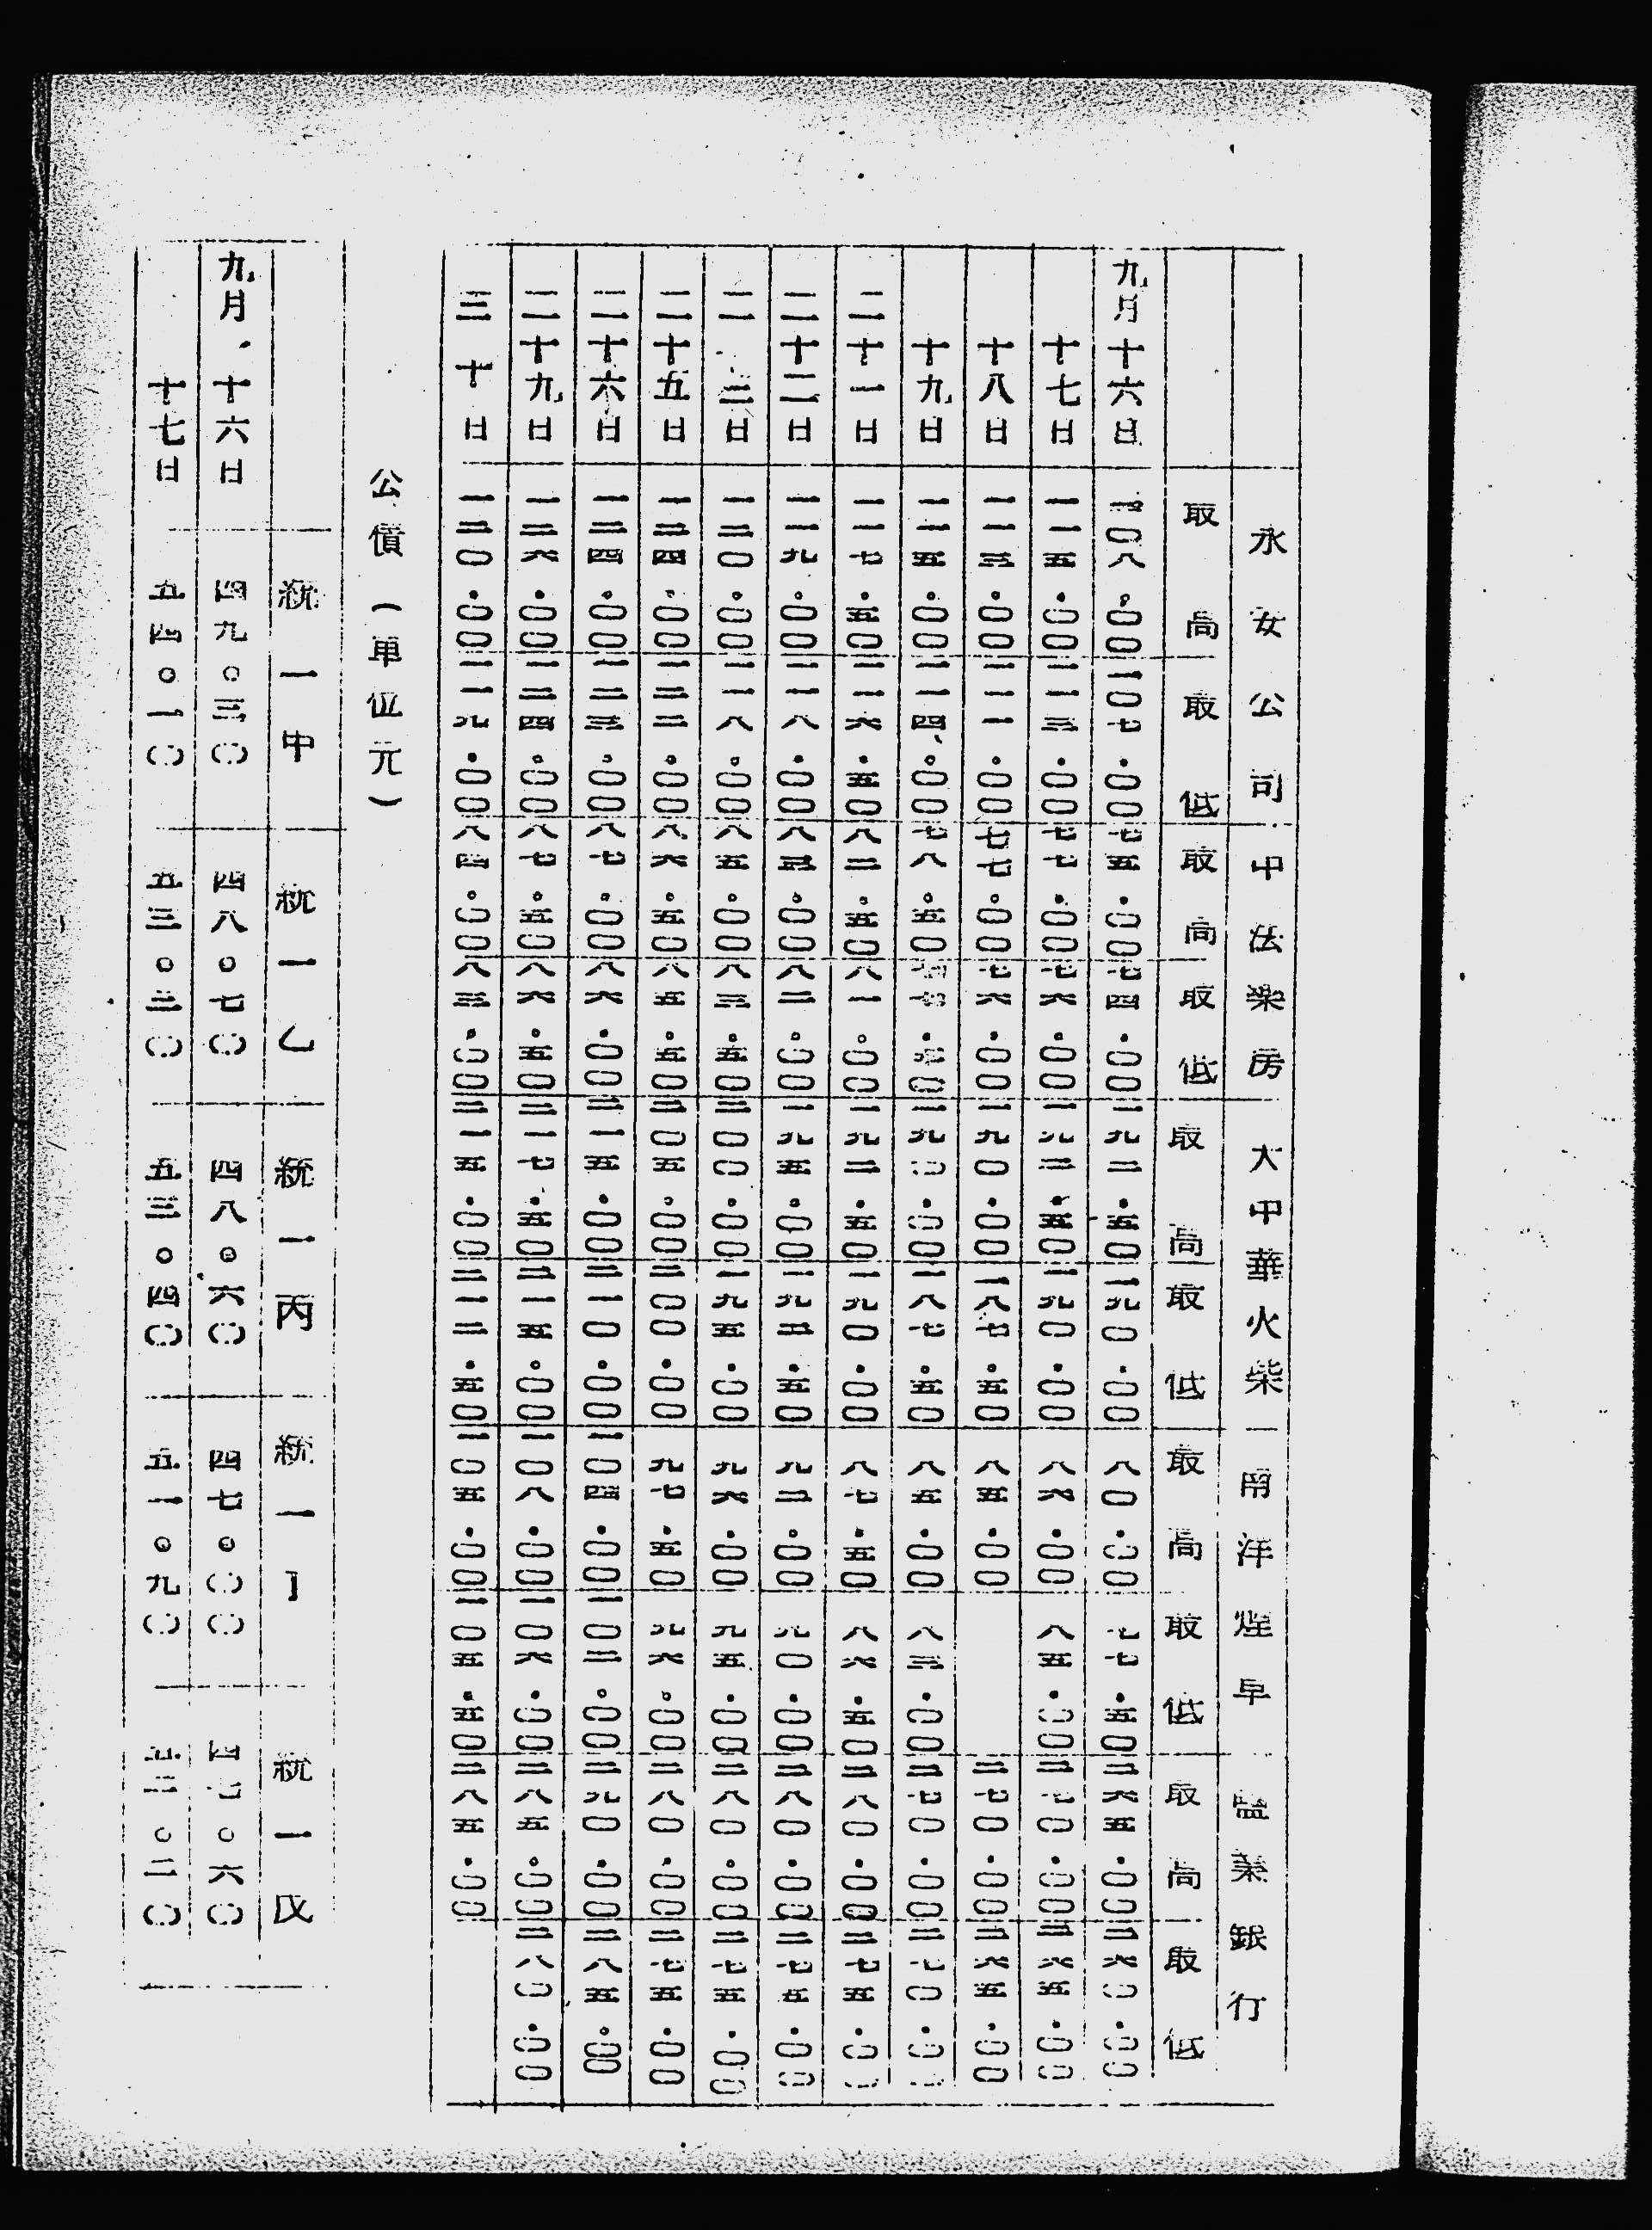 永安公司 中法藥房 大中華火柴 南洋煙草 鹽業銀行
最高 最低 最高 最低 最高 最低 最高 最低 最高 最低
九月十六日 一〇八.〇〇 一〇七.〇〇 七五.〇〇 七四.〇〇 一九二.五〇 一九〇.〇〇 八〇.〇〇 七七.五〇 二六五.〇〇 二六〇.〇〇
十七日 一一五.〇〇 一一三.〇〇 七七.〇〇 七六.〇〇 一九二.五〇 一九〇.〇〇 八六.〇〇 八五.〇〇 二七〇.〇〇 二六五.〇〇
十八日 一一三.〇〇 一一一.〇〇 七七.〇〇 七六.〇〇 一九〇.〇〇 一八七.五〇 八五.〇〇 二七〇.〇〇 二六五.〇〇
十九日 一一五.〇〇 一一四.〇〇 七八.五〇 七七.五〇 一九〇.〇〇 一八七.五〇 八五.〇〇 八三.〇〇 二七〇.〇〇 二七〇.〇〇
二十一日 一一七.五〇 一一六.五〇 八二.五〇 八一.〇〇 一九二.五〇 一九〇.〇〇 八七.五〇 八六.五〇 二八〇.〇〇 二七五.〇〇
二十二日 一一九.〇〇 一一八.〇〇 八三.〇〇 八二.〇〇 一九五.〇〇 一九二.五〇 九二.〇〇 九〇.〇〇 二八〇.〇〇 二七五.〇〇
二 三日 一二〇.〇〇 一一八.〇〇 八五.〇〇 八三.五〇 二〇〇.〇〇 一九五.〇〇 九六.〇〇 九五.〇〇 二八〇.〇〇 二七五.〇〇
二十五日 一二四.〇〇 一二二.〇〇 八六.五〇 八五.五〇 二〇五.〇〇 二〇〇.〇〇 九七.五〇 九六.〇〇 二八〇.〇〇 二七五.〇〇
二十六日 一二四.〇〇 一二三.〇〇 八七.〇〇 八六.〇〇 二一五.〇〇 二一〇.〇〇 一〇四.〇〇 一〇二.〇〇 二九〇.〇〇 二八五.〇〇
二十九日 一二六.〇〇 一二四.〇〇 八七.五〇 八六.五〇 二一七.五〇 二一五.〇〇 一〇八.〇〇 一〇六.〇〇 二八五.〇〇 二八〇.〇〇
三十日 一二〇.〇〇 一一九.〇〇 八四.〇〇 八三.〇〇 二一五.〇〇 二一二.五〇 一〇五.〇〇 一〇五.五〇 二八五.〇〇
公債(單位元)
統一甲 統一乙 統一丙 統一丁 統一戊
九月.十六日 四九.三〇 四八.七〇 四八.六〇 四七.〇〇 四七.六〇
十七日 五四.一〇 五三.三〇 五三.四〇 五一.九〇 五二.二〇